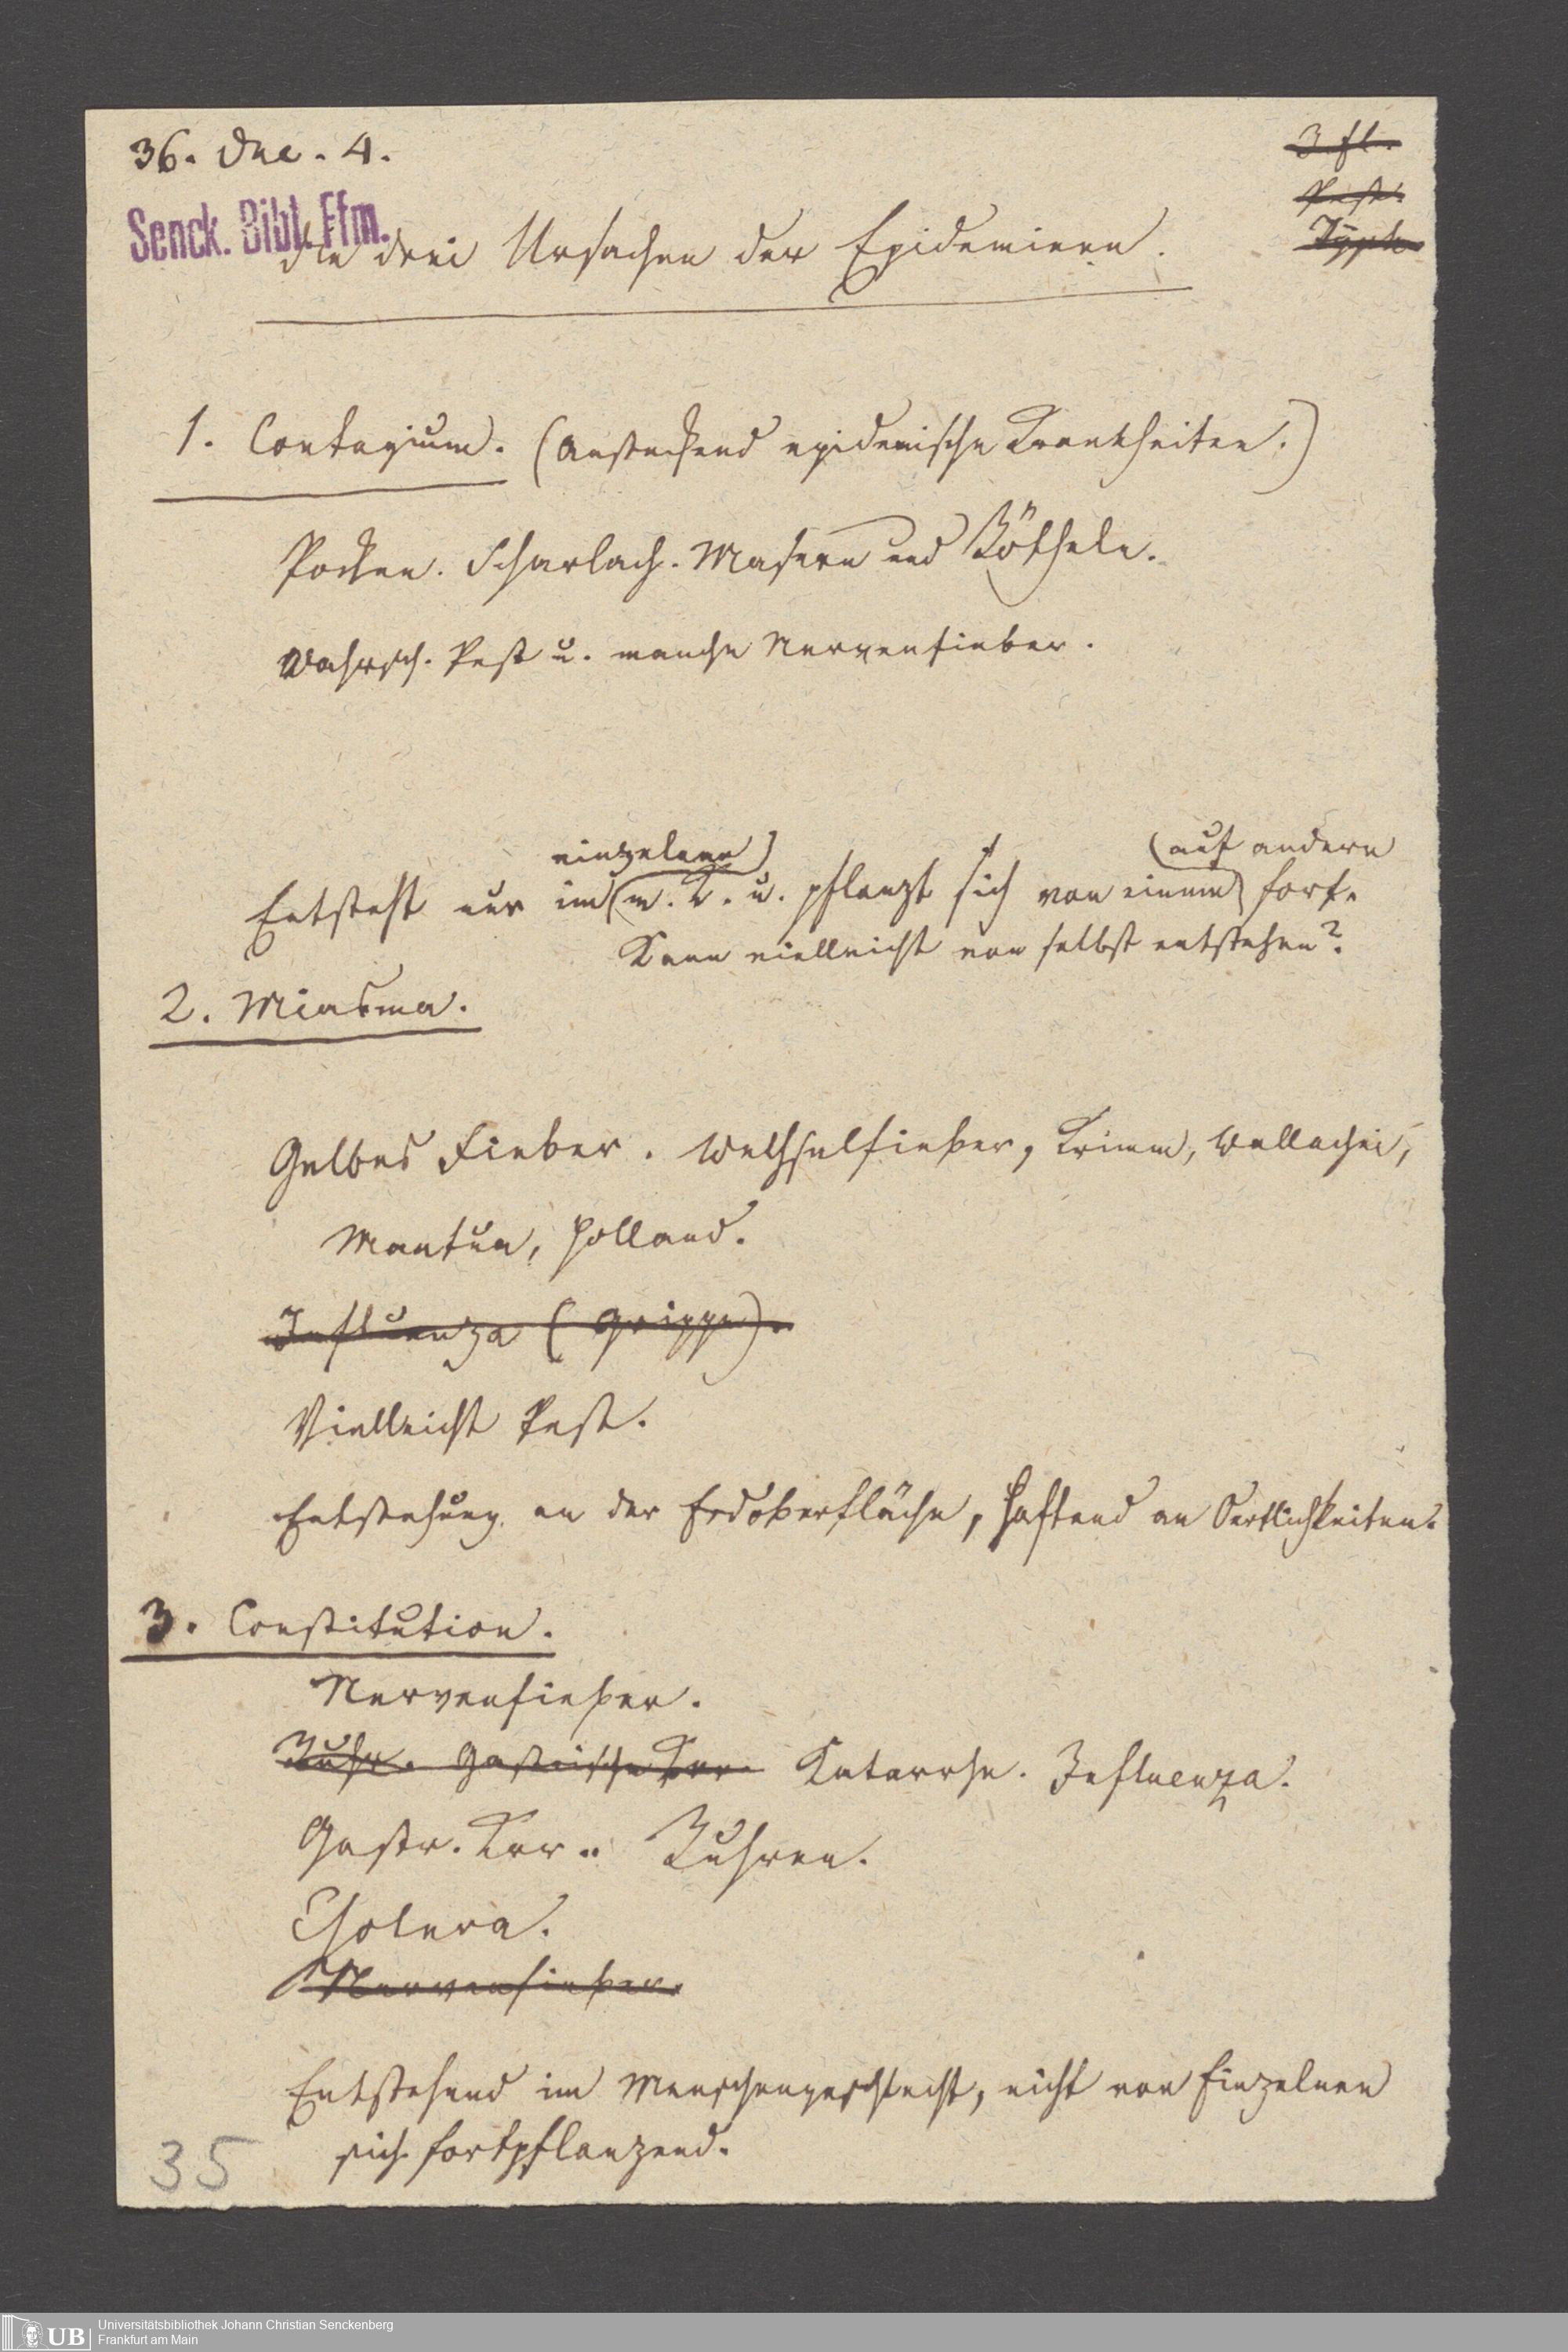 36. Dec. 4.
3 fl.
Pest.
Typh.
Senck. Bibl. Ffm.
Die drei Ursachen der Epidemieen.
1. Contagium. (Ansteckend epidemische Krankheiten.)
Pocken. Scharlach. Masern und Rötheln.
Wahrsch. Pest u. manche Nervenfieber.
einzelnen (auf andere
Entsteht nur im m. K. u. pflanzt sich von einem fort.
Kann vielleicht von selbst entstehen?
2. Miasma.
Gelbes Fieber. Wechselfieber, Krimm, Wallachei,
Mantua, Holland.
Influenza (Grippe).
Vielleicht Pest.
Entstehung an der Erdoberfläche, haftend an Oertlichkeiten.
3. Constitution.
Nervenfieber.
Ruhr. Gastrische Katarrhe. Influenza.
Gastr. Ruhren.
Cholera.
Nervenfieber.
Entstehend im Menschengeschlecht, nicht von Einzelnen
sich fortpflanzend.
35
UB
Universitätsbibliothek Johann Christian Senckenberg
Frankfurt am Main